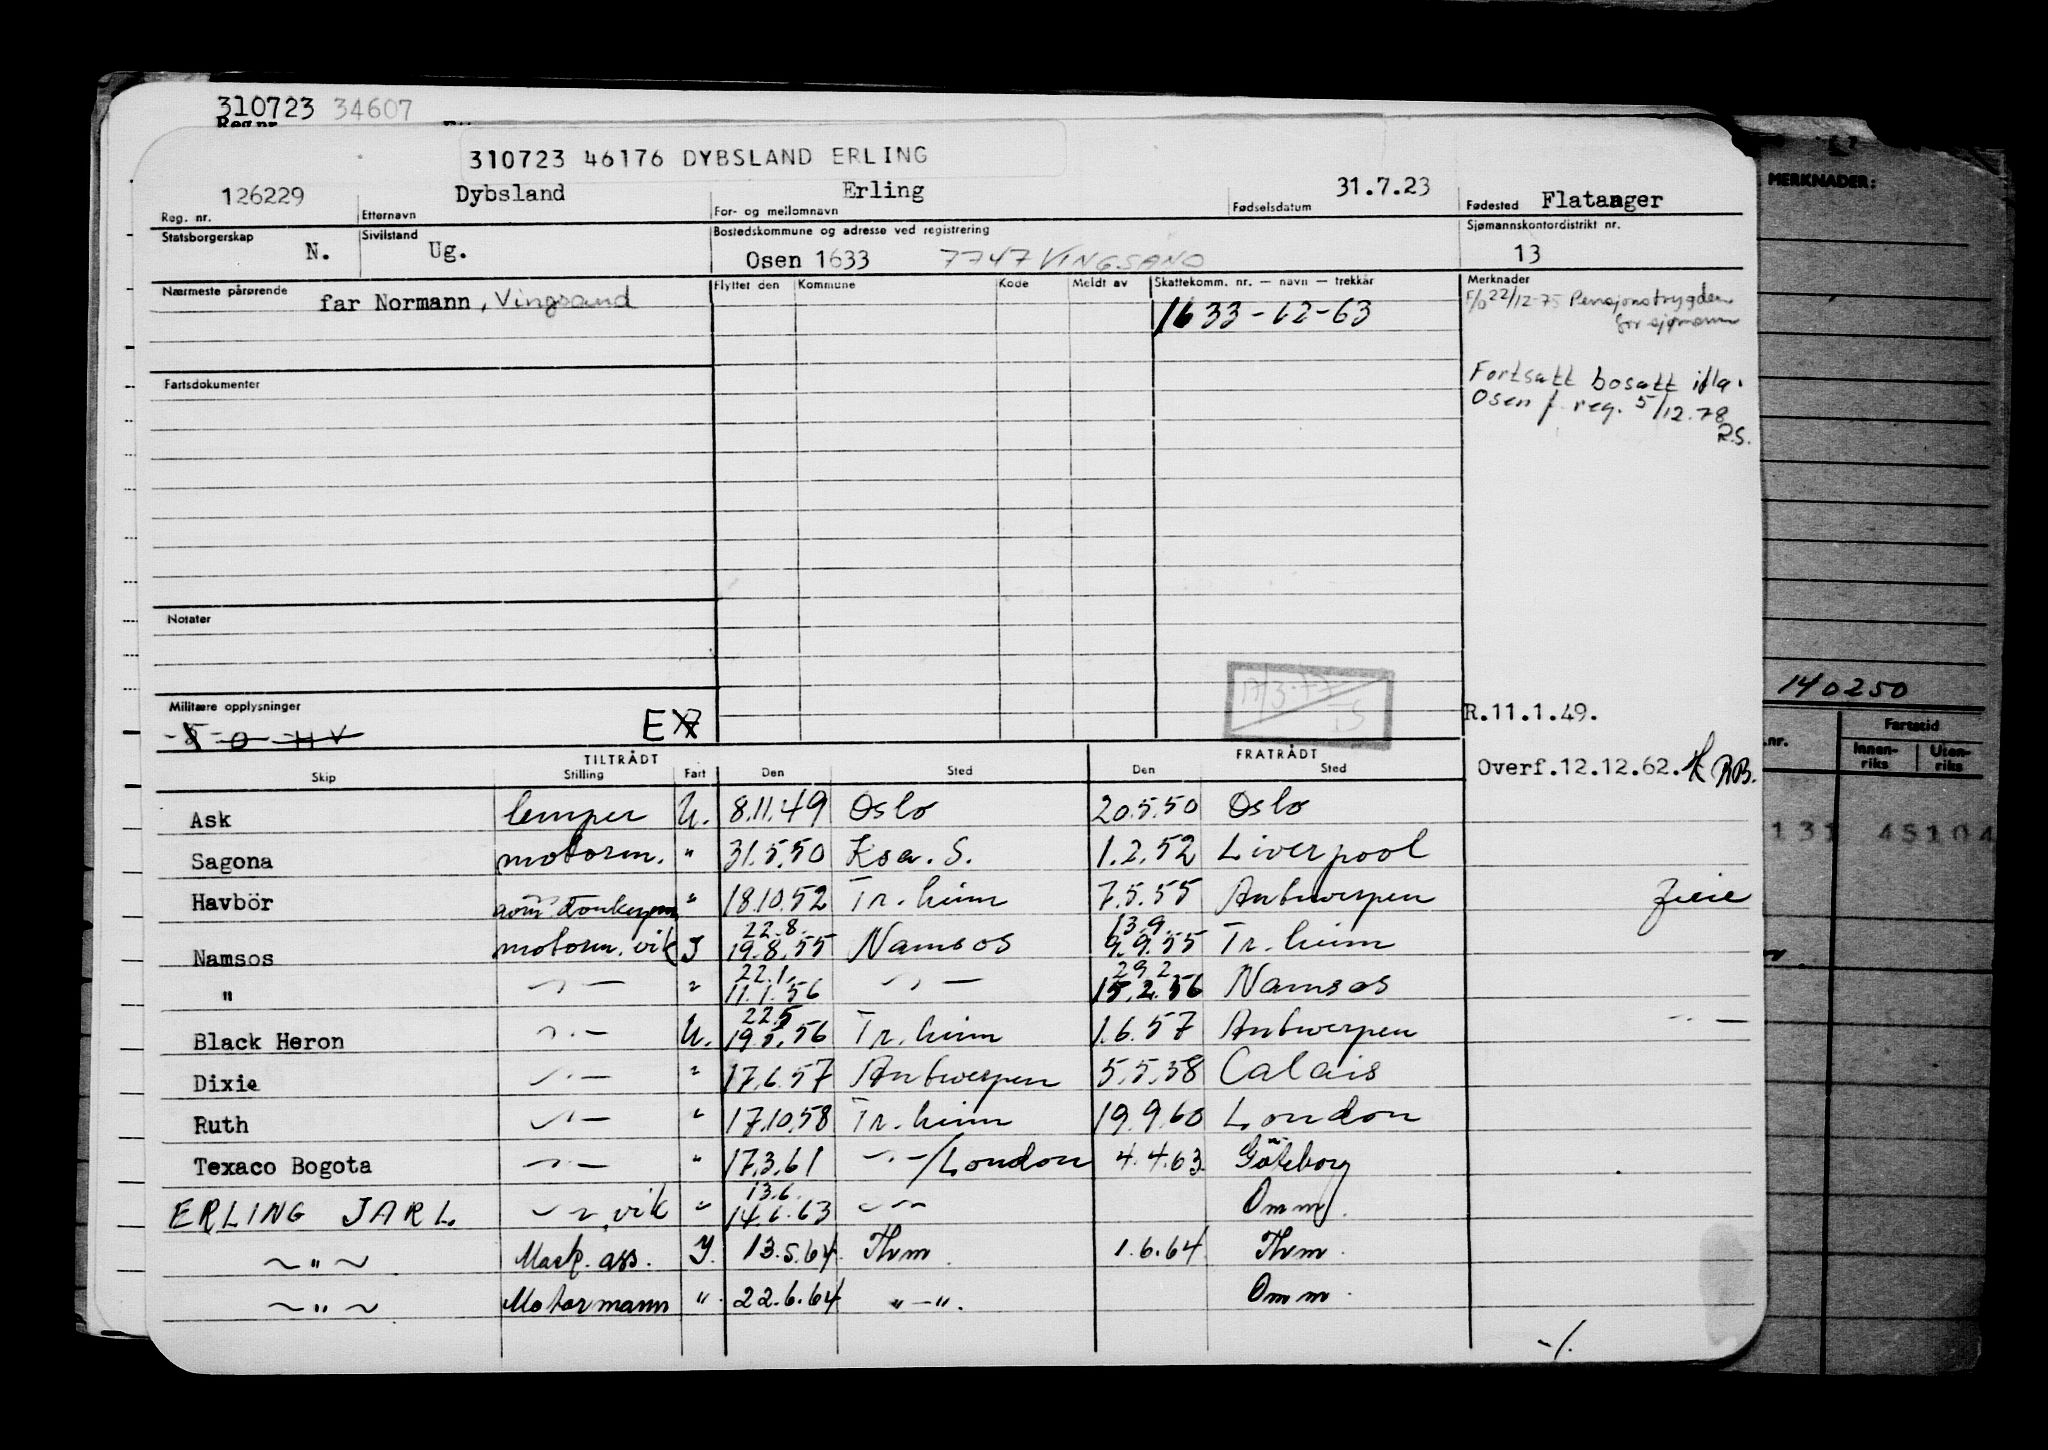 310723 34607
Reg.nr.
310723 46176 DYBSLAND ERLING
126229 Dybsland Erling 31.7.23 Flatanger
Reg. nr. Etternavn For- og mellomnavn Fødselsdatum Fødested
Statsborgerskap Sivilstand Bostedskommune og adresse ved registrering Sjømannskontordistrikt nr.
N. Ug. Osen 1633 7747 VINGSAND 13
Nærmeste pårørende Flyttet den Kommune Kode Meldt av Skattekomm. nr. — navn — trekkår Merknader
far Normann, Vingsand 1633-62-63 F/O 22/12-75 Pensjonstrygden
for sjømenn
Fartsdokumenter
Fortsatt bosatt ifla.
Osen f. reg. 5/12.78
R.S.
Notater
17/3-77
IS
Militære opplysninger
R.11.1.49.
TILTRÅDT FRATRÅDT
Skip Stilling Fart Den Sted Den Sted
Overf.12.12.62. RB.
Ask lemper U. 8.11.49 Oslo 20.5.50 Oslo
Sagona motorm. " 31.5.50 Ksa. S. 1.2.52 Liverpool
Havbör " 18.10.52 Tr.heim 7.5.55 Antwerpen
22.8. 13.9.
Namsos motorm. vik I 19.8.55 Namsos 9.9.55 Tr.heim
22.1. 29.2
" —"— " 11.1.56 —"— 15.2.56 Namsos
22.5
Black Heron —"— U. 19.5.56 Tr.heim 1.6.57 Antwerpen —"—
Dixie —"— " 17.6.57 Antwerpen 5.5.58 Calais
Ruth —"— " 17.10.58 Tr.heim 19.9.60 London
Texaco Bogota —"— " 17.3.61 —"—/London 4.4.63 Göteborg
13.6.
ERLING JARL —"—, vik " 14.6.63 —"— Omm.
~"~ Mask. ass. I. 13.5.64 Thm. 1.6.64 Thm.
~"~ Motormann " 22.6.64 "—". Omm.
-/.
MERKNADER:
140250
Fartstid
.nr. Innen-riks Uten-riks
131 45104